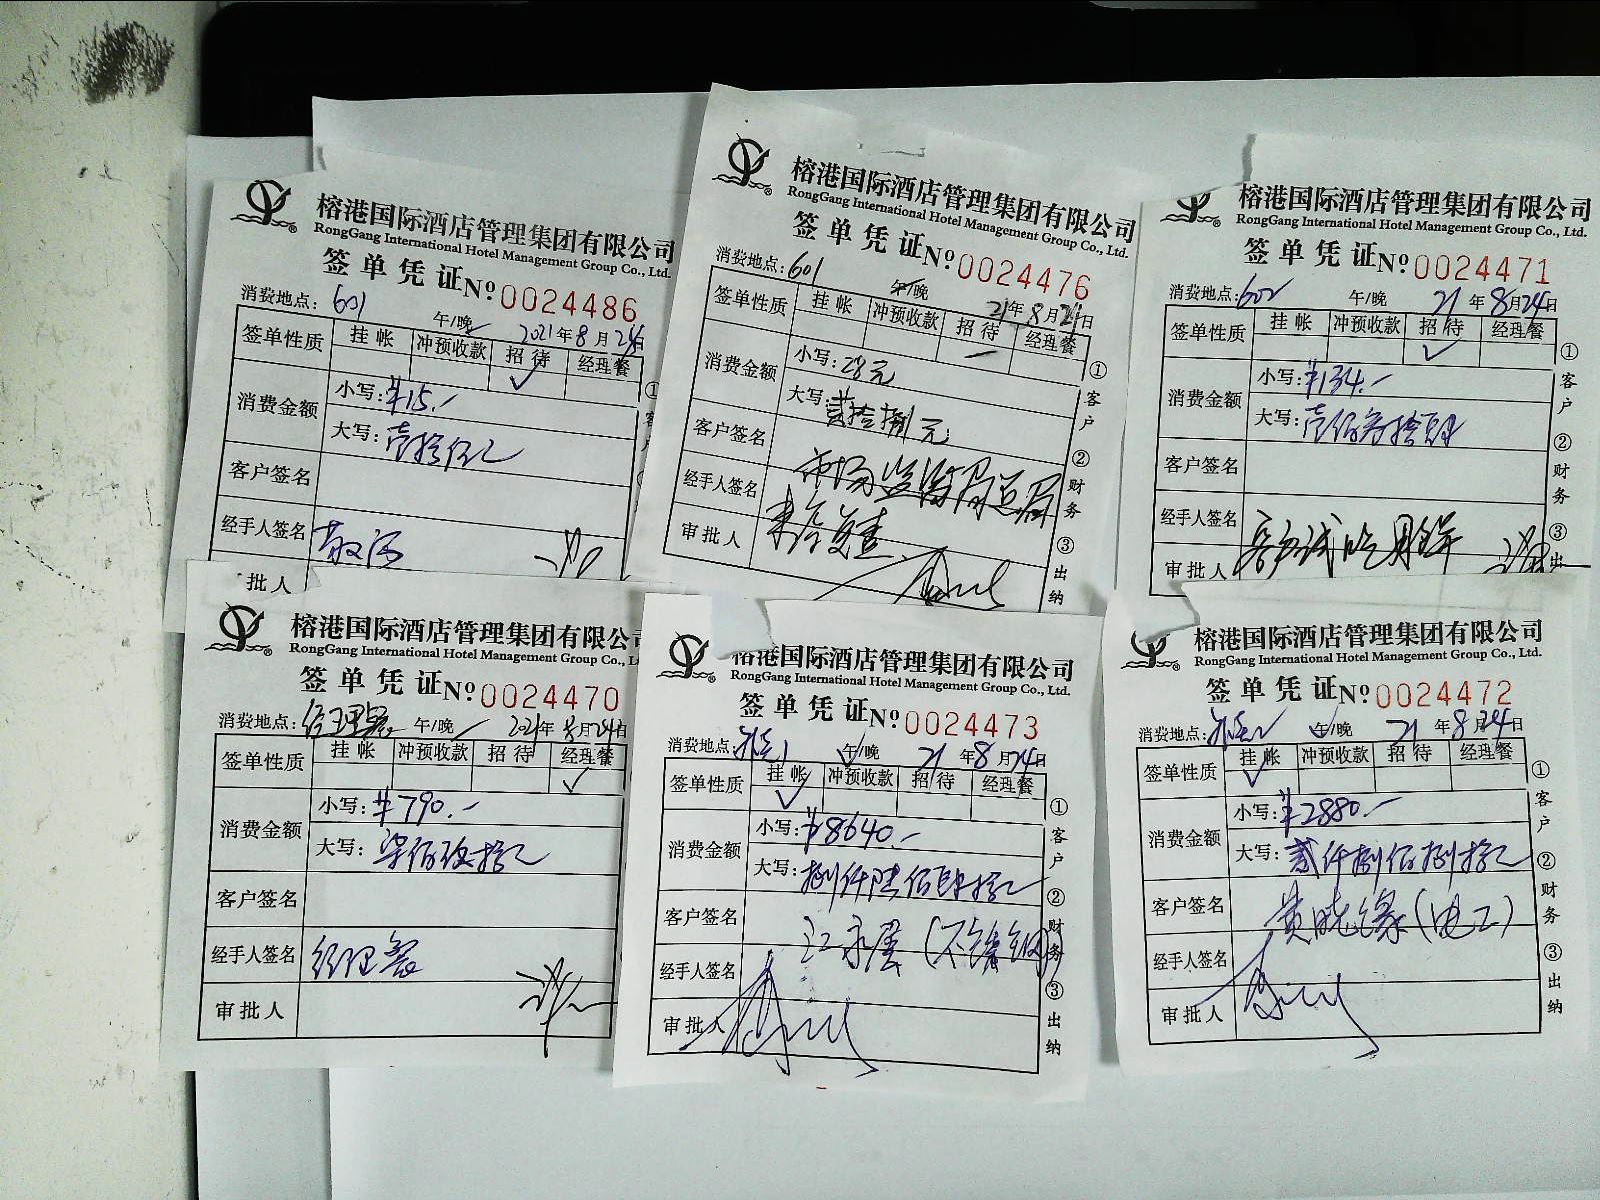 榕港国际酒店管理集团有限公司
RongGang International Hotel Management Group Co., Ltd.
签单凭证 No 0024486
消费地点：601 午/晚 2021年8月24日
签单性质 挂帐 冲预收款 招待 经理餐
✓
消费金额 小写：¥15.-
大写：壹拾伍元
客户签名
经手人签名
批人
①
客
榕港国际酒店管理集团有限公司
RongGang International Hotel Management Group Co., Ltd.
签单凭证 No 0024476
消费地点：601 午/晚 21年8月24日
签单性质 挂帐 冲预收款 招待 经理餐
消费金额 小写：28元
大写：贰拾捌元
客户签名 市场监督局
经手人签名
审批人
①客户 ②财务 ③出纳
榕港国际酒店管理集团有限公司
RongGang International Hotel Management Group Co., Ltd.
签单凭证 No 0024471
消费地点：602 午/晚 21年8月24日
签单性质 挂帐 冲预收款 招待 经理餐
✓
消费金额 小写：¥134.-
大写：壹佰叁拾肆
客户签名
经手人签名 客户试吃月饼
审批人
①客户 ②财务 ③出
榕港国际酒店管理集团有限公司
RongGang International Hotel Management Group Co., L
签单凭证 No 0024470
消费地点：经理餐 午/晚 2021年8月24日
签单性质 挂帐 冲预收款 招待 经理餐
✓
消费金额 小写：¥790.-
大写：柒佰玖拾元
客户签名
经手人签名 经理餐
审批人
榕港国际酒店管理集团有限公司
RongGang International Hotel Management Group Co., Ltd.
签单凭证 No 0024473
消费地点： 午/晚 21年8月24日
签单性质 挂帐 冲预收款 招待 经理餐
✓
消费金额 小写：¥8640.-
大写：捌仟陆佰肆拾元
客户签名 江永屋（不锈钢）
经手人签名
审批人
①客户 ②财务 ③出纳
榕港国际酒店管理集团有限公司
RongGang International Hotel Management Group Co., Ltd.
签单凭证 No 0024472
消费地点： 午/晚 21年8月24日
签单性质 挂帐 冲预收款 招待 经理餐
✓
消费金额 小写：¥2880.-
大写：贰仟捌佰捌拾元
客户签名 黄晓缘（电工）
经手人签名
审批人
①客户 ②财务 ③出纳